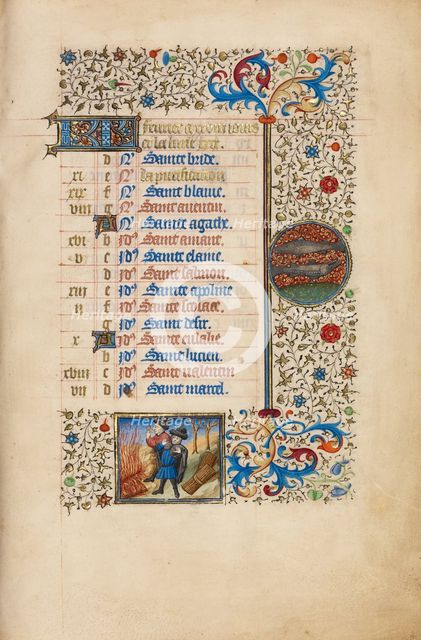 Feurier a xxviii iours
et la lune xxix
d N⁹ Sainte bride.
xi e N⁹ la purification
xix f N⁹ Saint blaiue.
viii g N⁹ Saint auentin
A N⁹ Sainte agathe.
xvi b Id⁹ Saint amant.
v c Id⁹ Sainte
d Id⁹ Saint salmon.
xiii e Id⁹ Sainte apoline
ii f Id⁹ Sainte scolace.
g Id⁹ Saint desir.
x A Id⁹ Sainte eulalie.
b Id⁹ Saint lucien.
xviii c Id⁹ Saint valentin
vii d Saint marcel.